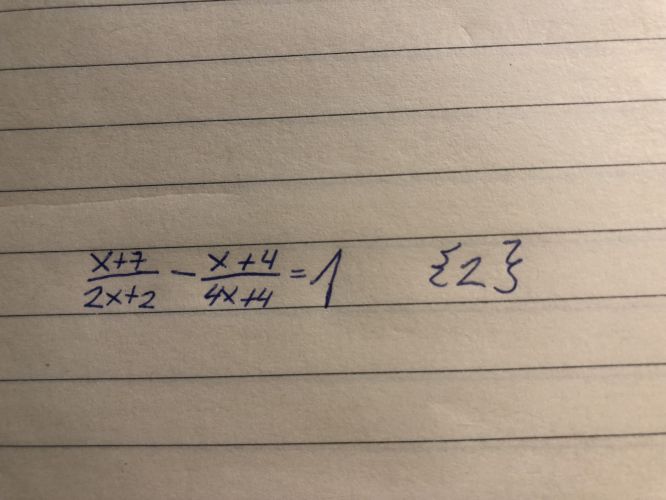 x+7/2x+2 - x+4/4x+4 = 1 {2}